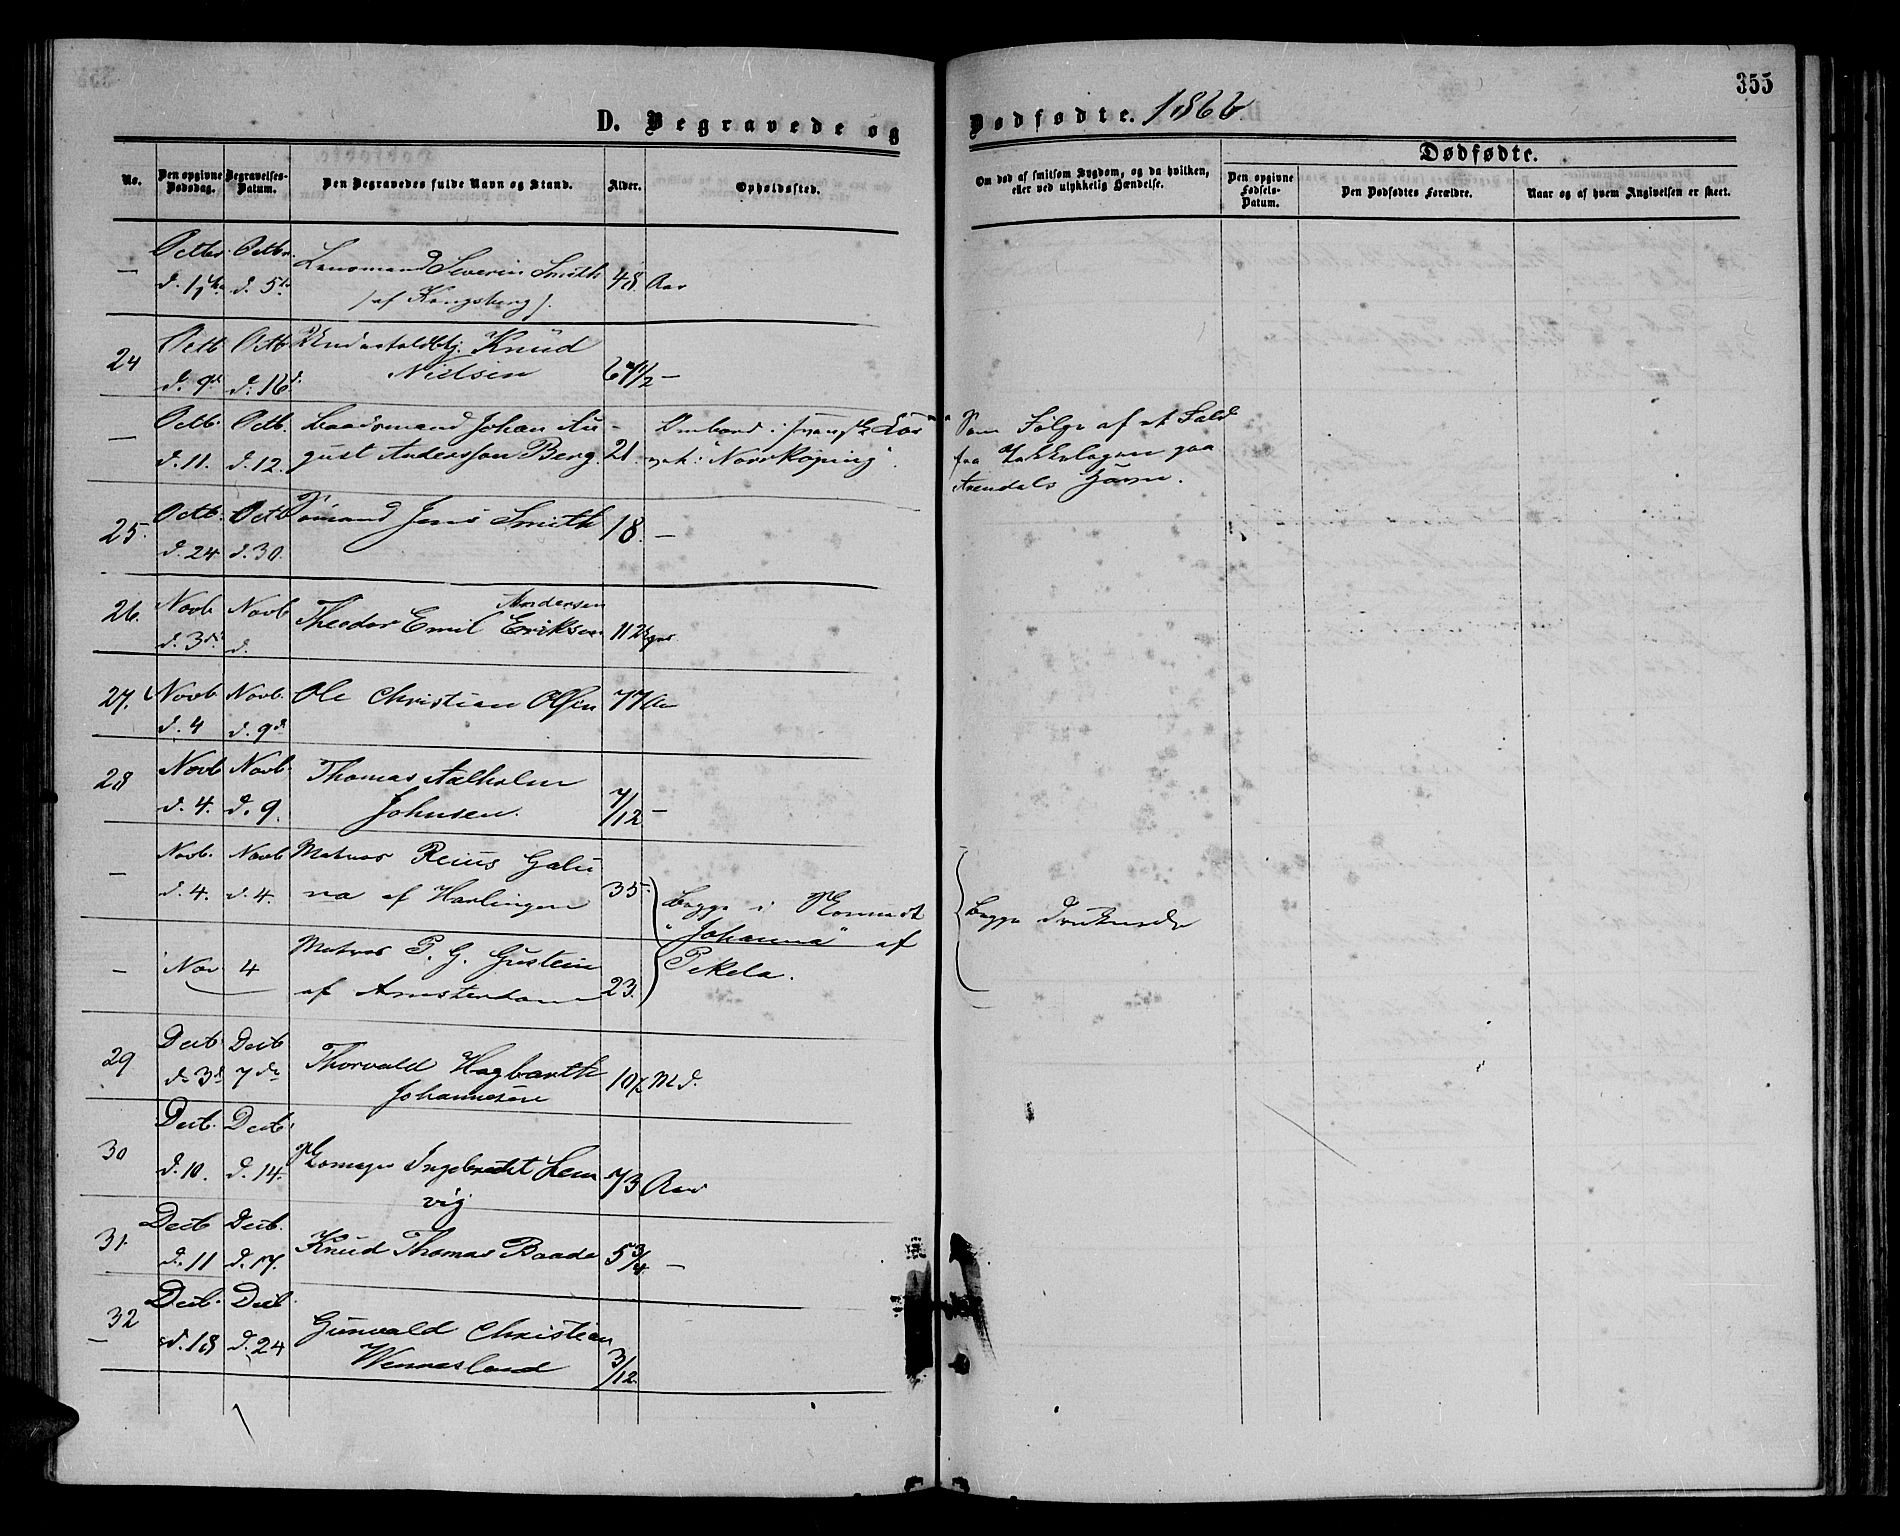 355
D. Begravede og
Dødfødte. 1866
No.
Den opgivne Dødsdag.
Begravelses-Datum.
Den Begravedes fulde Navn og Stand.
Alder.
Opholdssted.
Om død af smitsom Sygdom, og da hvilken,
eller ved ulykkelig Hændelse.
Dødfødte.
Den opgivne Fødsels-Datum.
Den Dødfødtes Forældre.
Naar og af hvem Angivelsen er skeet.
— Octbr Octbr. Severin Smith 48 Aar
d. 1ste d. 5te (af Kongsberg).
24 Octb Octb Knud
d. 9de d. 16d. Nielsen 67 1/2 —
— Octb. Octb. Baadsmand Johan Au-
d. 11. d. 12. gust Andersson Berg. 21. "Norrköping".
Ombord i
Som Følge af et Fald
fra paa
Arendals Havn.
25. Octb. Octb Jens Smith 18. —
d. 24 d. 30.
26. Novb Novb Andersen
Theodor Emil Eriksen 11 Dage
d. 3die d.
27. Novb Novb. Ole Christian Olsen 77 Aar
d. 4 d. 9de
28 Novb Novb. Thomas Aalholm
d. 4. d. 9. Johnsen. 7/12 —
— Novb. Novb Matros
d. 4. d. 4. na af Harlingen 35.
— Nov 4 Matros P. G.
af Amsterdam 23.
begge i
"Johanna" af
Pekela.
begge druknede
29 Decb Decb Thorvald Hagbarth
d. 3d 7de Johannesen 10 1/2 Md.
30 Decb. Decb. Ingebredt Lem
d. 10. d. 14. vig 73 Aar
31. Decb Decb. Knud Thomas Baade 5 3/4. —
d. 11 d. 17.
32 Decb. Decb Gunvald Christian
d. 18 d. 24 Wennesland 3/12.